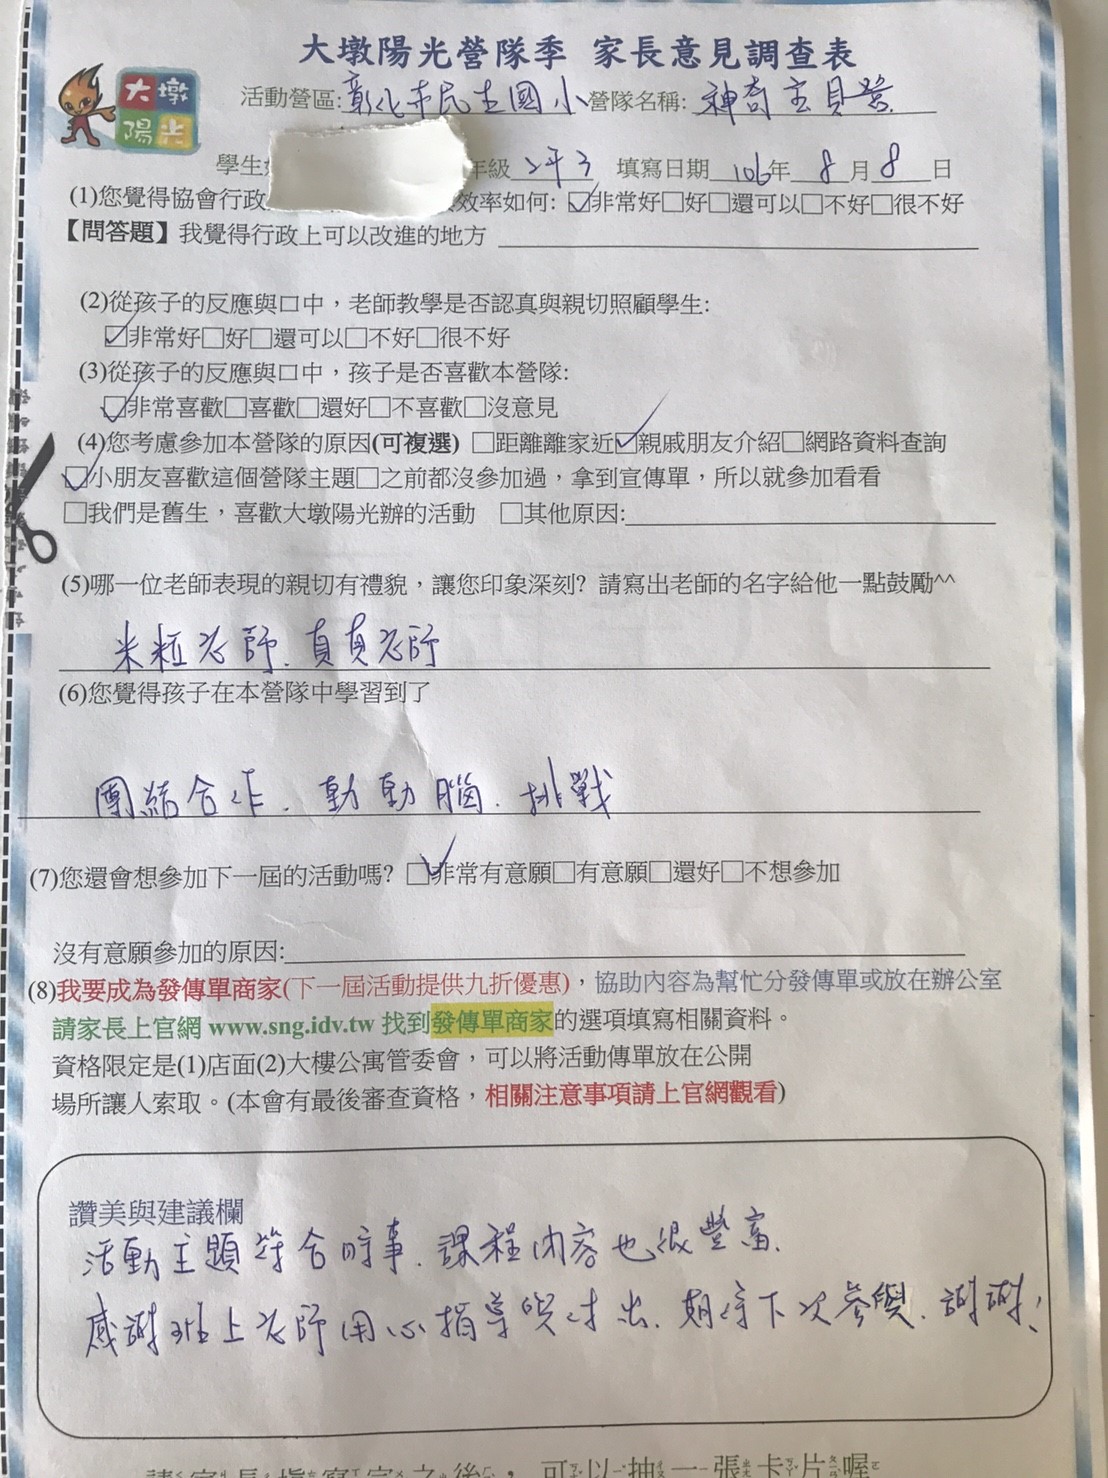 大墩陽光營隊季 家長意見調查表
大墩
陽光
活動營區:彰化市民生國小營隊名稱:神奇寶貝營
學生 年級 2年3 填寫日期 106年 8月8日
(1)您覺得協會行政 效率如何: ☑非常好□好□還可以□不好□很不好
【問答題】我覺得行政上可以改進的地方
(2)從孩子的反應與口中，老師教學是否認真與親切照顧學生:
☑非常好□好□還可以□不好□很不好
(3)從孩子的反應與口中，孩子是否喜歡本營隊:
☑非常喜歡□喜歡□還好□不喜歡□沒意見
(4)您考慮參加本營隊的原因(可複選) □距離離家近☑親戚朋友介紹□網路資料查詢
☑小朋友喜歡這個營隊主題□之前都沒參加過，拿到宣傳單，所以就參加看看
□我們是舊生，喜歡大墩陽光辦的活動 □其他原因:
(5)哪一位老師表現的親切有禮貌，讓您印象深刻? 請寫出老師的名字給他一點鼓勵^^
米粒老師、真真老師
(6)您覺得孩子在本營隊中學習到了
團結合作、動動腦、挑戰
(7)您還會想參加下一屆的活動嗎? ☑非常有意願□有意願□還好□不想參加
沒有意願參加的原因:
(8)我要成為發傳單商家(下一屆活動提供九折優惠)，協助內容為幫忙分發傳單或放在辦公室
請家長上官網 www.sng.idv.tw 找到發傳單商家的選項填寫相關資料。
資格限定是(1)店面(2)大樓公寓管委會，可以將活動傳單放在公開
場所讓人索取。(本會有最後審查資格，相關注意事項請上官網觀看)
讚美與建議欄
活動主題符合時事、課程內容也很豐富、
感謝班上老師用心指導與付出、期待下次參與、謝謝！
請家長填寫完之後，可以抽一張卡片喔